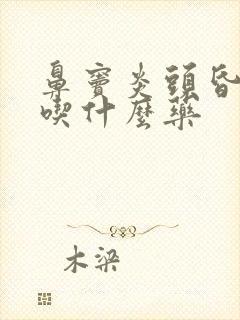 鼻竇炎頭昏
喫什麼藥
木梁